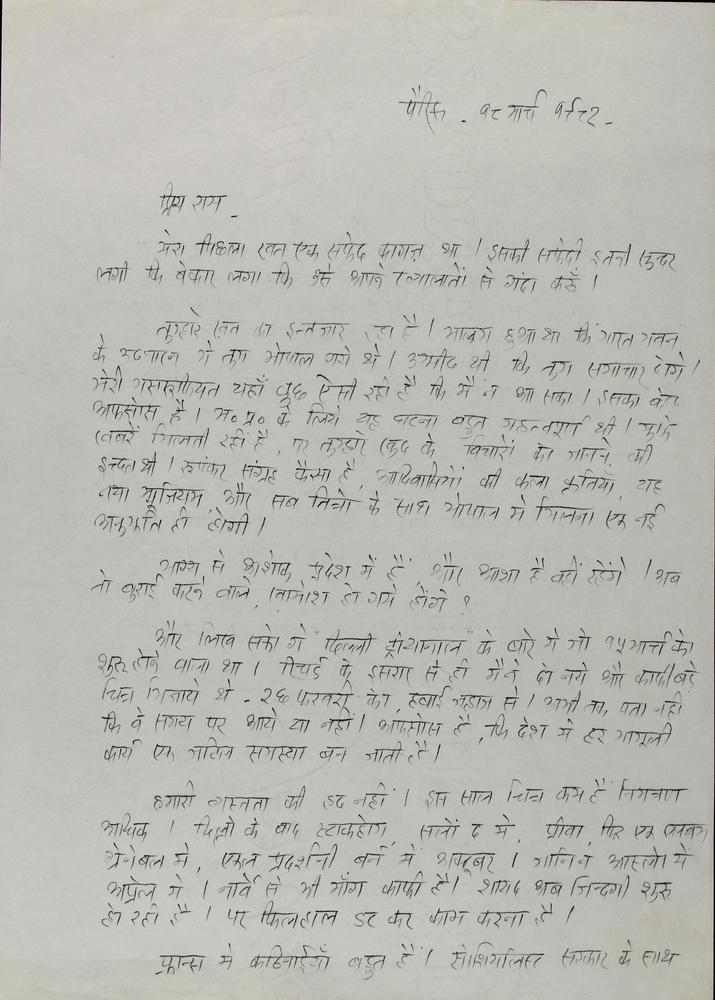 पैरिस - १८ मार्च १९८२ -
प्रिय राम -
मेरा पिछला ख़त एक सफ़ेद कागज़ था । इसकी सफ़ेदी इतनी सुन्दर
लगी कि बेकार लगा कि उसे अपने ख़्यालातों से गंदा करूँ ।
तुम्हारे ख़त का इन्तजार रहा है । मालूम हुआ था कि भारत भवन
के उदघाटन में तुम भोपाल गये थे । उम्मीद थी कि तुम समाचार दोगे ।
मेरी मसरूफ़ियत यहाँ कुछ ऐसी रही है कि मैं न आ सका । इसका बेहद
अफ़सोस है । म० प्र० के लिये यह घटना बहुत महत्त्वपूर्ण थी । मुझे
ख़बरें मिलती रहीं हैं, पर तुम्हारे खुद के विचारों को जानने की
इच्छा थी । रूपंकर संग्रह कैसा है, आदिवासियों की कला कृतियाँ, यह
नया म्यूजियम, और सब मित्रों के साथ भोपाल में मिलना एक नई
अनुभूति ही होगी ।
भाग्य से अशोक प्रदेश में हैं, और आशा है वहीं रहेंगे । अब
तो बुराई करने वाले ख़ामोश हो गये होंगे ?
और लिख सकोगे "दिल्ली ट्रीयानाल" के बारे में जो १५ मार्च को
शुरू होने वाला था । रिचर्ड के इसरार से ही मैंने दो नये और काफी बड़े
चित्र भिजाये थे - २६ फरवरी को, हवाई जहाज से । अभी तक पता नहीं
कि वे समय पर आये या नहीं । अफ़सोस है, कि देश में हर मामूली
कार्य एक जटिल समस्या बन जाती है ।
हमारी व्यस्तता की हद नहीं । इस साल चित्र कम हैं निमंत्रण
अधिक । दिल्ली के बाद स्टाकहोम, सालों द मे, फिर एक
ग्रेनोबल में, एकल प्रदर्शनी बर्न में अक्टूबर । जानिन आस्लो में
अप्रेल में । नार्वे से भी माँग काफ़ी है । शायद अब जिन्दगी शुरू
हो रही है । पर फिलहाल डट कर काम करना है ।
फ्रान्स में कठिनाईयाँ बहुत हैं । सोशियलिस्ट सरकार के साथ